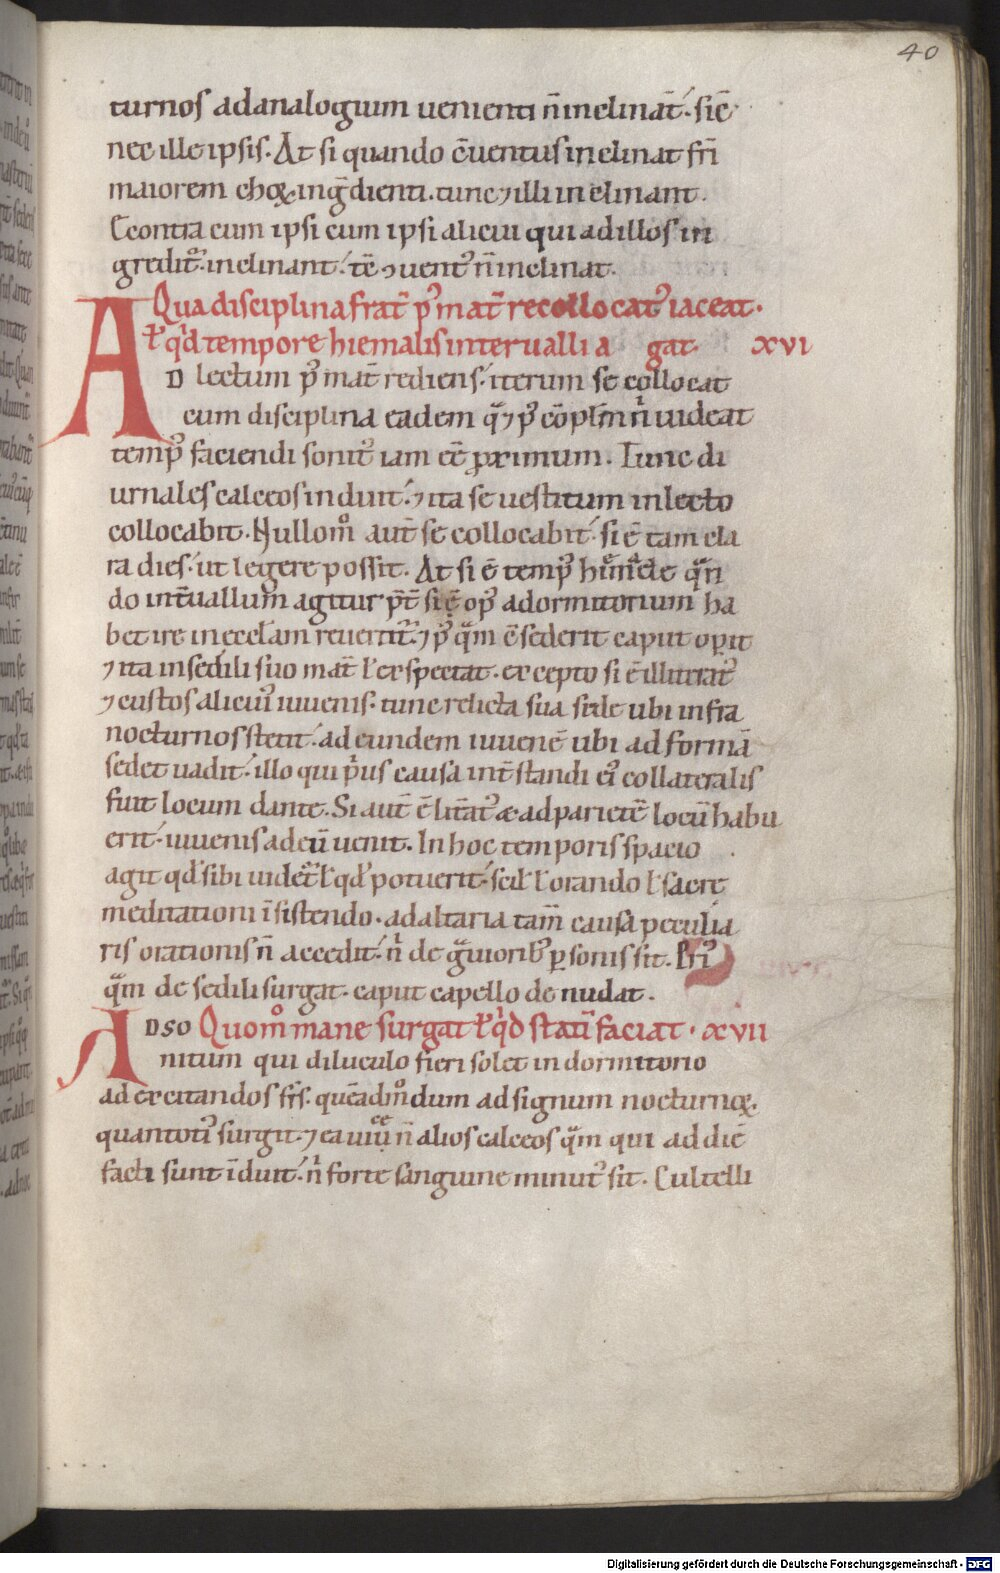 40
turnos ad analogium uenienti n̄ inclinat̄. sic̄
nec ille ipsis. At si quando c̄uentus inclinat fr̄i
maiorem chorꝝ ingᷓdienti. tunc ⁊ illi inclinant.
Econtra cum ipsi cum ipsi alicui qui ad illos in
greditᷣ. inclinant. tc̄ ꝯuentᷣ n̄ inclinat.
Qua disciplina frat̄ pᷣ mat̄ recollocatᷣ iaceat.
ł qͥd tempore hiemalis interualli a gat. xvi
AD lectum pᷣ mat̄ rediens. iterum se collocat
cum disciplina eadem qᷓ ⁊ pᷣ cōpl̄m nͥ uideat
tempᷣ faciendi sonitᷣ iam eē ꝓximum. Tunc di
urnales calceos induit. ⁊ ita se uestitum in lecto
collocabit. Nullom̊ aut̄ se collocabit. si ē tam cla
ra dies. ut legere possit. At si ē tempᷣ
do int̄uallum agitur pt̄ si ē opᷣ ad dormitorium ha
bet ire in eccl̄am reuertitᷣ. ⁊ pᷣ qᷓm c̄sederit caput opit
⁊ ita in sedili suo mat̄ ł expectat. excepto si ē illitratᷣ
⁊ custos alicuiᷣ iuuenis. tunc relicta sua sede ubi infra
nocturnos stetit. ad eundem iuuenē ubi ad formā
sedet uadit. illo qui pͥus causa int̄standi eiᷣ collateralis
fuit locum dante. Si aut̄ ē lit̄atᷣ ad parietē locū habu
erit. iuuenis ad eū uenit. In hoc temporis spacio
agit qd̕ sibi uidet̄ ł qd̕ potuerit. scił ł orando ł sacre
meditationi īsistendo. ad altaria tam̄ causa peculia
ris orationis n̄ accedit. nͥ de gᷓuiorib ꝑsonis sit. Priᷣ
qᷓm de sedili surgat. caput capello de nudat.
ADSO Quom̊ mane surgat ł qͥd statī faciat. xvii
nitum qui diluculo fieri solet in dormitorio
ad excitandos fr̄s. quēadm̊dum ad signum nocturnoꝝ.
quantotiᷣ surgit. ⁊ ea n̄ alios calceos qᷓm qui ad diē
facti sunt īduit. nͥ forte sanguine minutᷣ sit. Cultelli
Digitalisierung gefördert durch die Deutsche Forschungsgemeinschaft - DFG